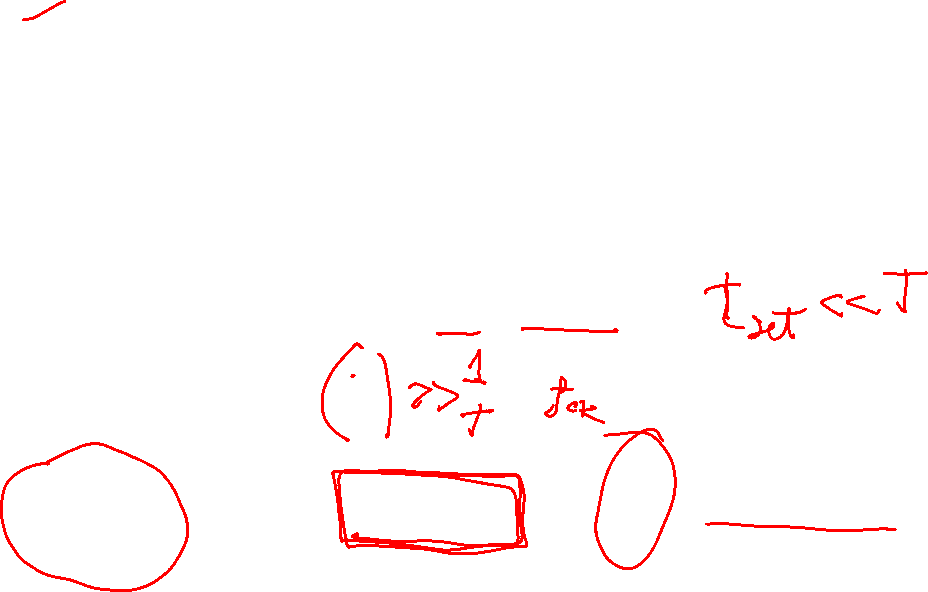 t_set << T
( · ) >> 1/T f_CK